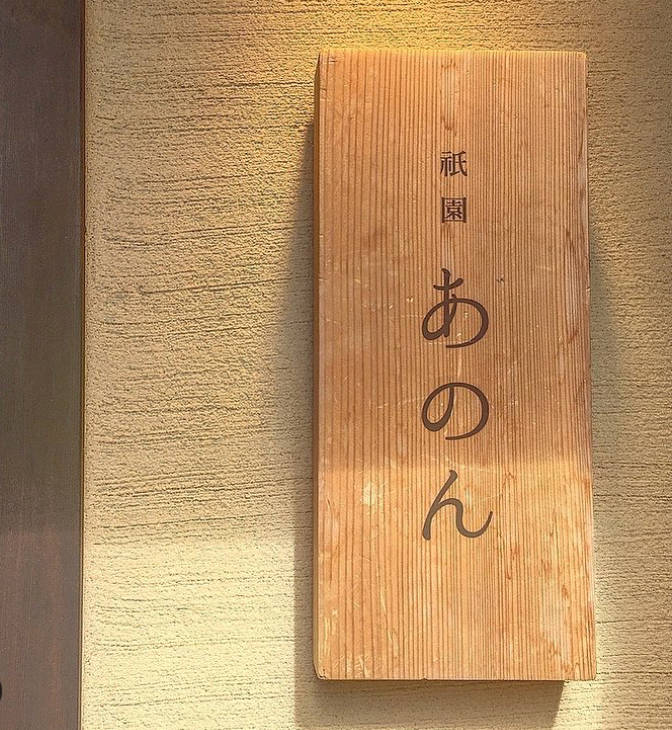 祇園
あのん